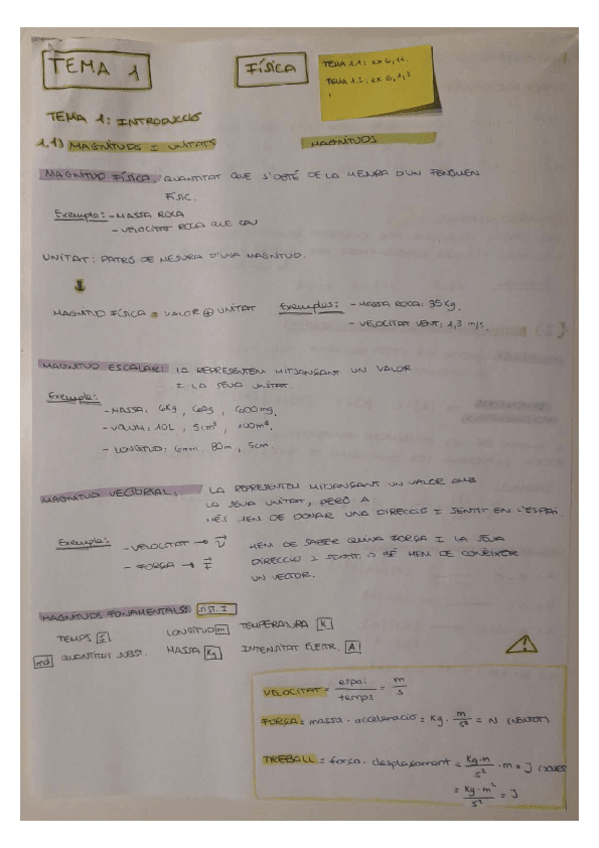 TEMA 1
FÍSICA
TEMA 1.1: EX 6, 11
TEMA 1.2: EX 6, 1, 3
TEMA 1: INTRODUCCIÓ
1.1) MAGNITUDS I UNITATS
MAGNITUDS
MAGNITUD FÍSICA: QUANTITAT QUE S'OBTÉ DE LA MESURA D'UN FENOMEN
FÍSIC.
Exemple: - MASSA ROCA
- VELOCITAT ROCA QUE CAU
UNITAT: PATRÓ DE MESURA D'UNA MAGNITUD.
MAGNITUD FÍSICA = VALOR ⊕ UNITAT Exemples: - MASSA ROCA: 35 Kg.
- VELOCITAT VENT: 1,3 m/s.
MAGNITUD ESCALAR: LA REPRESENTEM MITJANÇANT UN VALOR
I LA SEVA UNITAT.
Exemple:
- MASSA: 6Kg, 600g, 600mg.
- VOLUM: 10L, 5cm³, 100m³.
- LONGITUD: 6mm, 80m, 5cm.
MAGNITUD VECTORIAL: LA REPRESENTEM MITJANÇANT UN VALOR AMB
LA SEVA UNITAT, PERÒ A
MÉS HEM DE DONAR UNA DIRECCIÓ I SENTIT EN L'ESPAI.
Exemple: - VELOCITAT → v⃗ HEM DE SABER QUINA FORÇA I LA SEVA
- FORÇA → F⃗ DIRECCIÓ I SENTIT. O BÉ HEM DE CONÈIXER
UN VECTOR.
MAGNITUDS FONAMENTALS: SIST. I
TEMPS s LONGITUD m TEMPERATURA K
mol QUANTITAT SUBST. MASSA Kg INTENSITAT ELÈCTR. A
VELOCITAT = espai / temps = m / s
FORÇA = massa · acceleració = Kg · m / s² = N (NEWTON)
TREBALL = força · desplaçament = Kg·m / s² · m = J (JOULES
= Kg·m² / s² = J